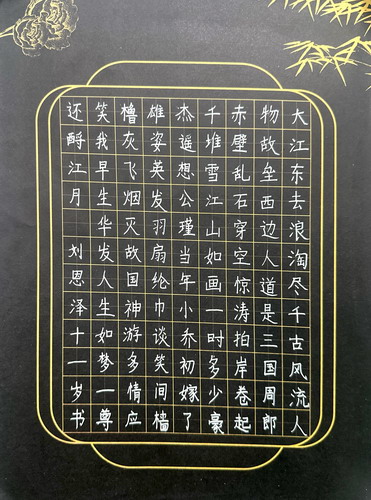 大江东去浪淘尽千古风流人
物故垒西边人道是三国周郎
赤壁乱石穿空惊涛拍岸卷起
千堆雪江山如画一时多少豪
杰遥想公瑾当年小乔初嫁了
雄姿英发羽扇纶巾谈笑间樯
橹灰飞烟灭故国神游多情应
笑我早生华发人生如梦一尊
还酹江月 刘恩泽十一岁书